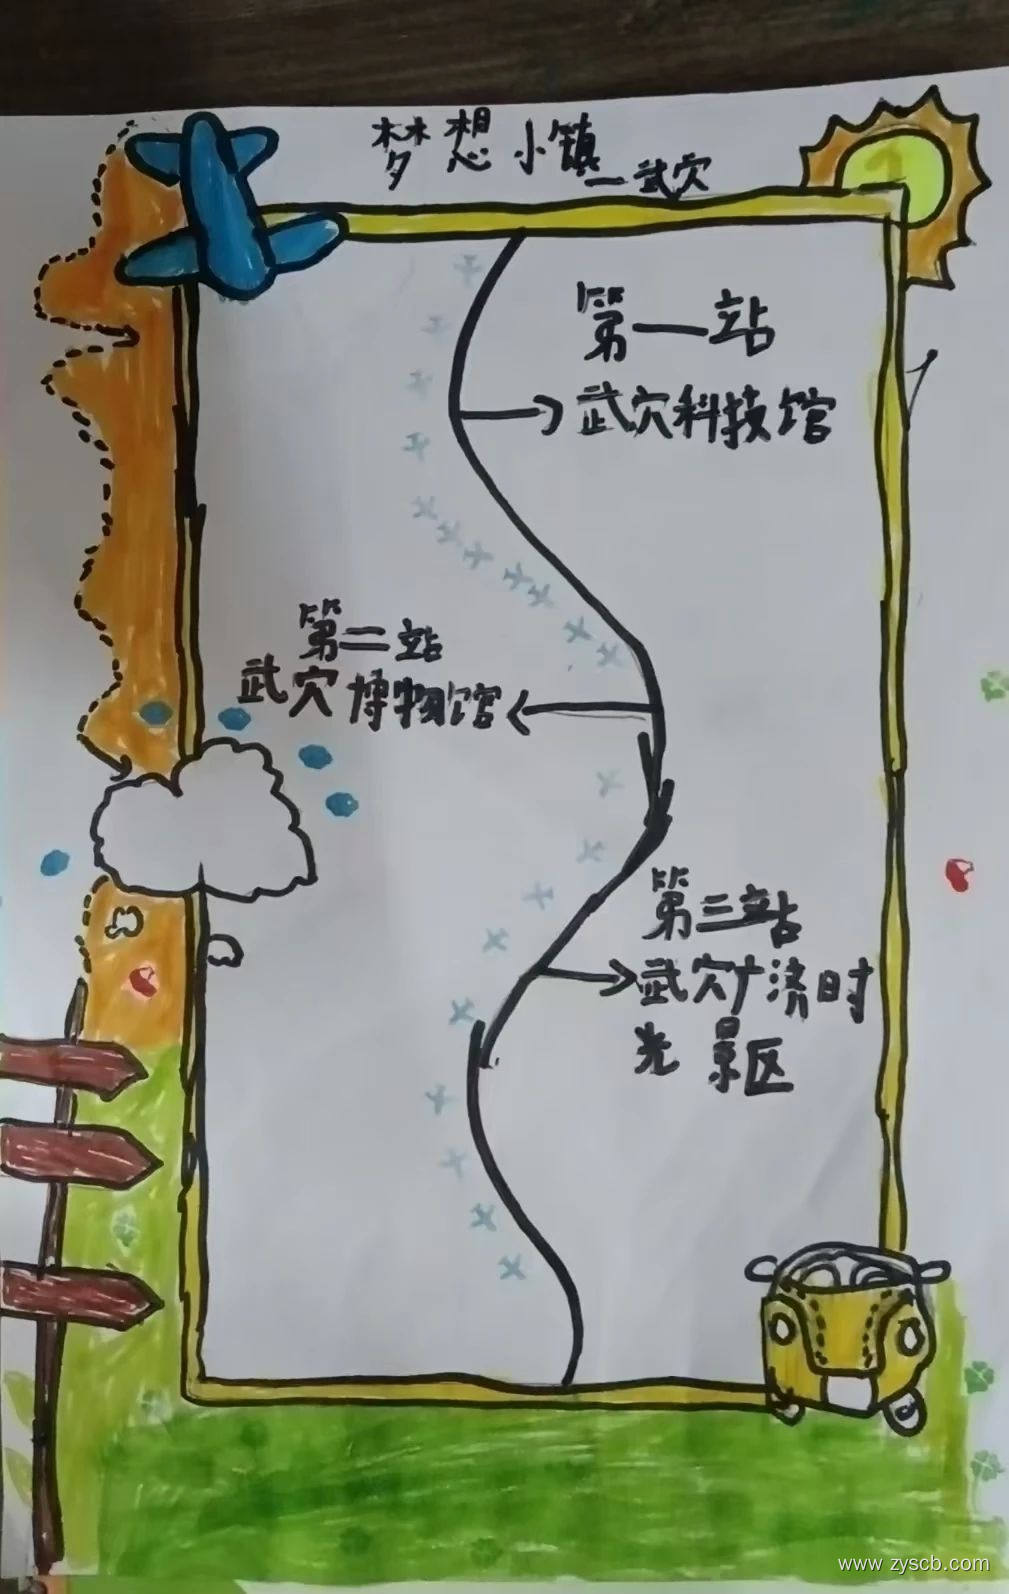 梦想小镇
—武穴
第一站
武穴科技馆
第二站
武穴博物馆
第三站
武穴广济时
光景区
www.zyscb.com